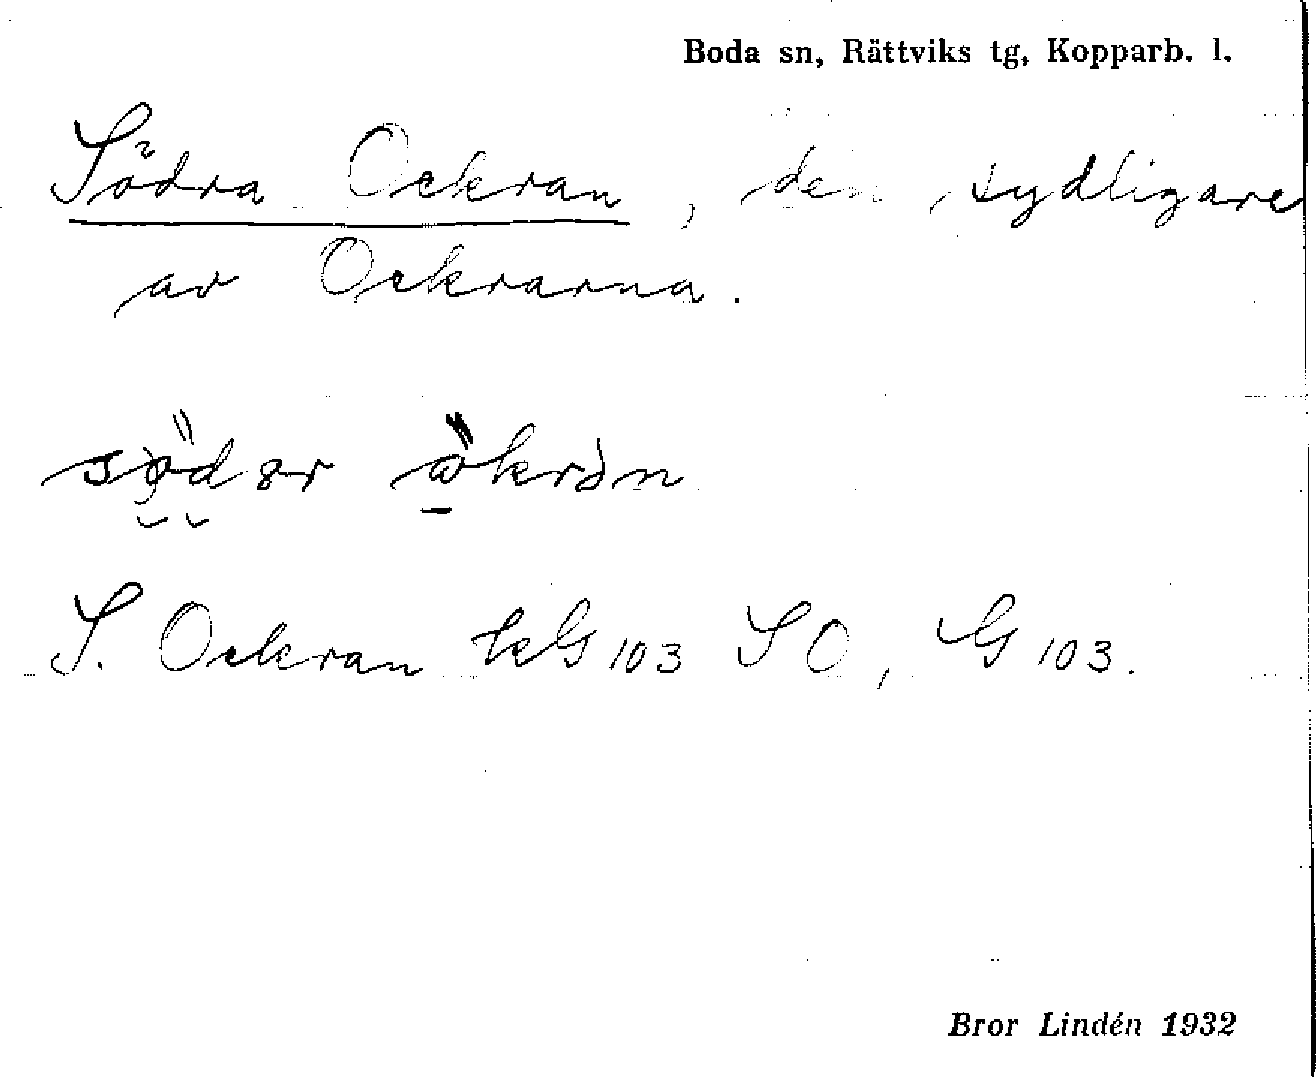 Boda sn, Rättviks tg, Kopparb. l.
Södra Ockran, den sydligare
av Ockrarna.
S. Ockran kG 103 SO, G 103.
Bror Lindén 1932